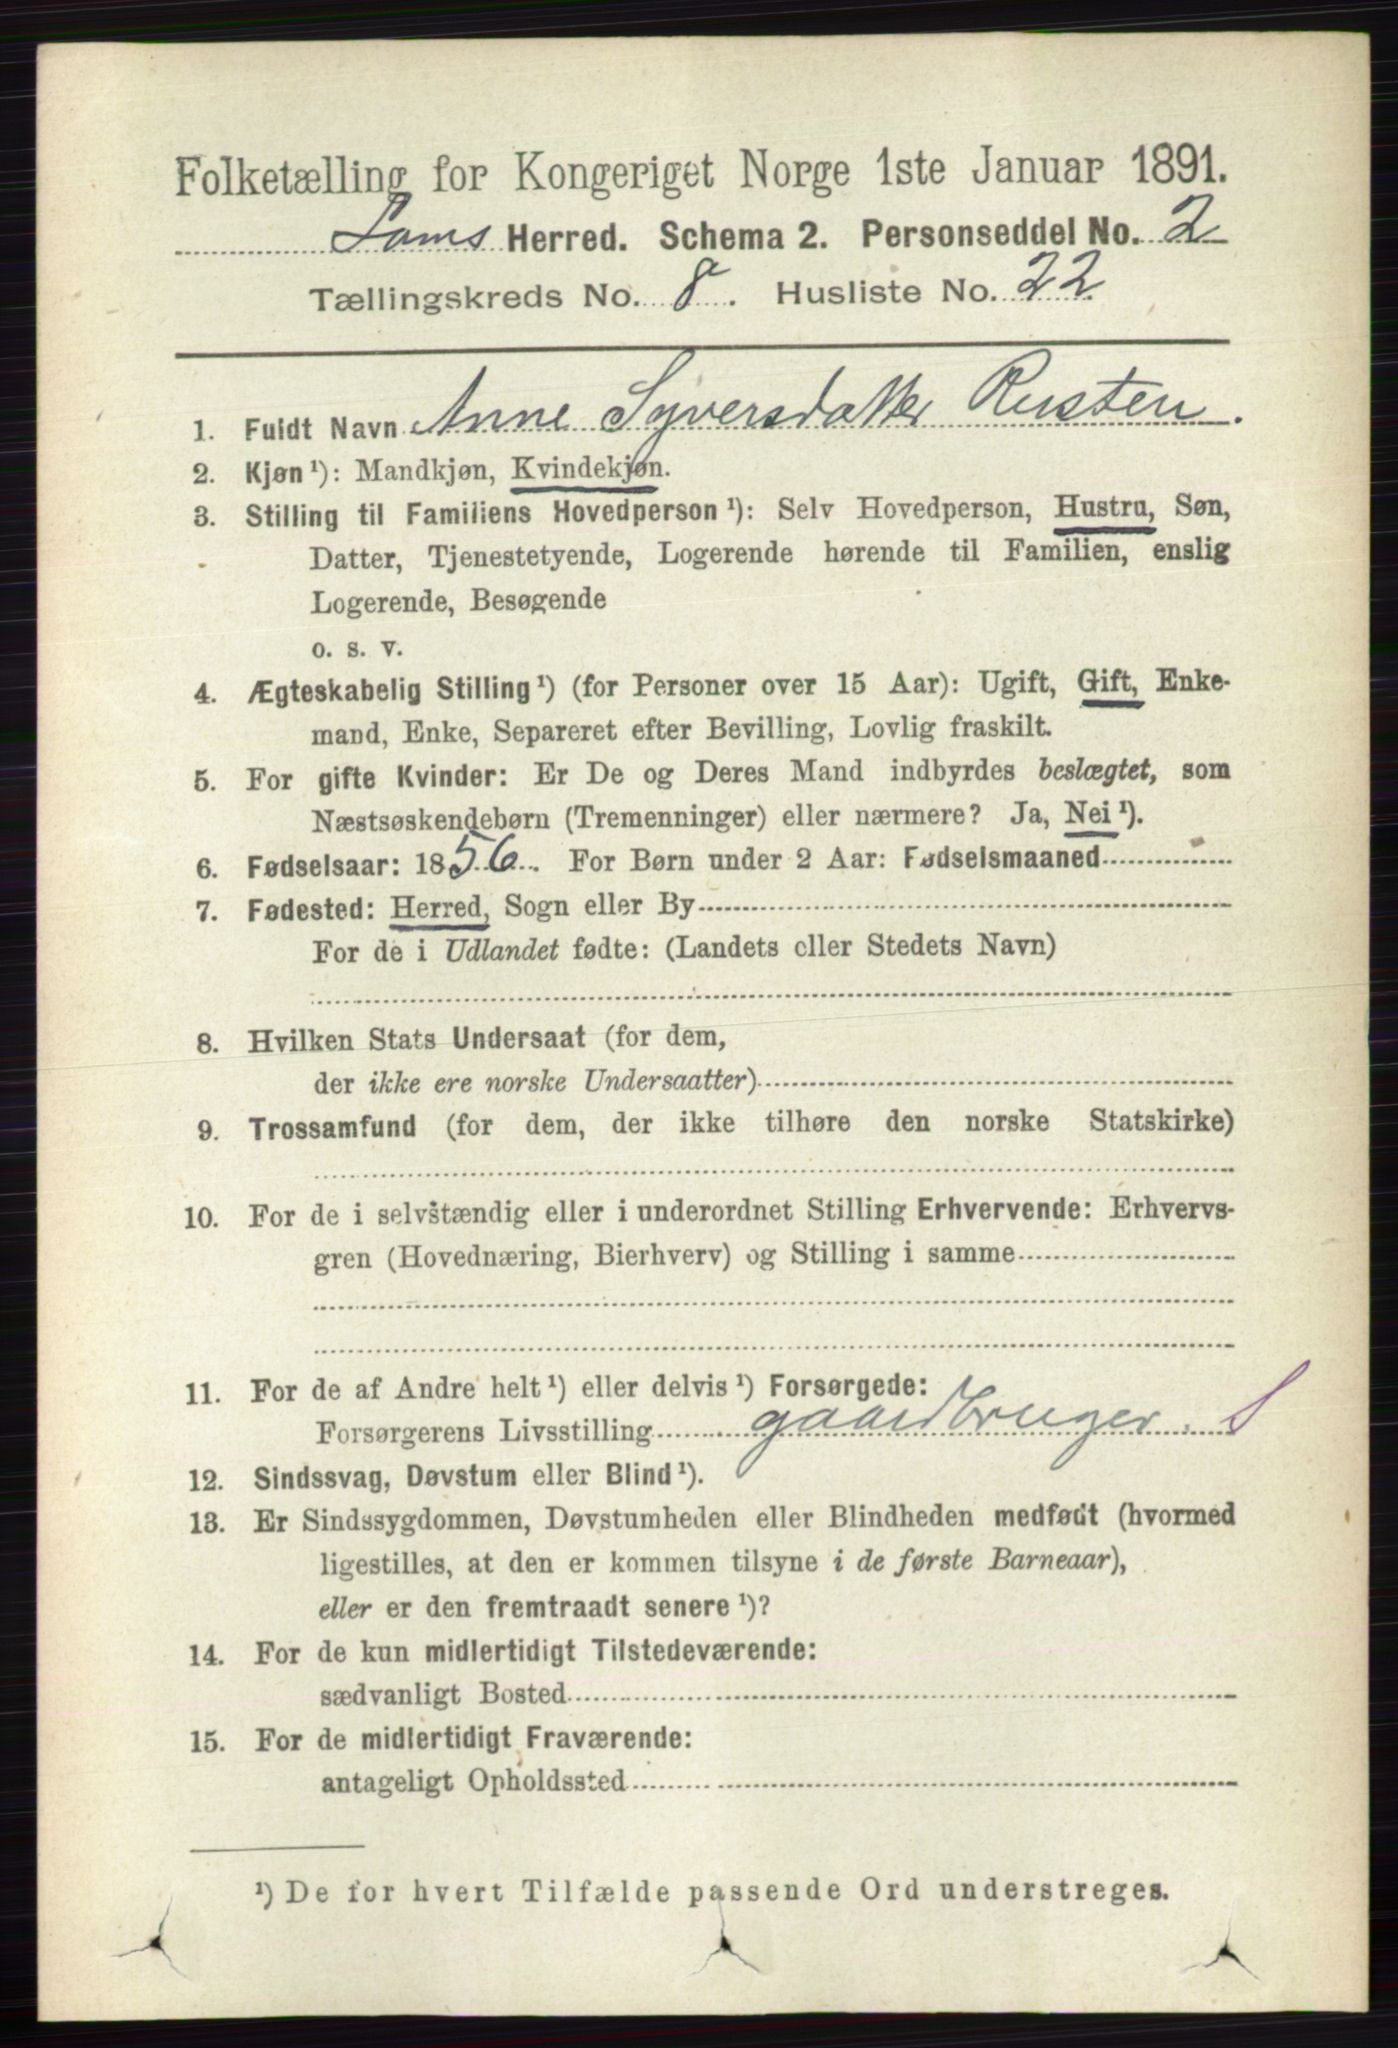 Folketælling for Kongeriget Norge 1ste Januar 1891.
Loms Herred. Schema 2. Personseddel No. 2
Tællingskreds No. 8. Husliste No. 22.
1. Fuldt Navn Anne Syversdatter Rusten.
2. Kjøn¹): Mandkjøn, Kvindekjøn.
3. Stilling til Familiens Hovedperson¹): Selv Hovedperson, Hustru, Søn,
Datter, Tjenestetyende, Logerende hørende til Familien, enslig
Logerende, Besøgende
o. s. v.
4. Ægteskabelig Stilling¹) (for Personer over 15 Aar): Ugift, Gift, Enke-
mand, Enke, Separeret efter Bevilling, Lovlig fraskilt.
5. For gifte Kvinder: Er De og Deres Mand indbyrdes beslægtet, som
Næstsøskendebørn (Tremenninger) eller nærmere? Ja, Nei¹).
6. Fødselsaar: 1856. For Børn under 2 Aar: Fødselsmaaned
7. Fødested: Herred, Sogn eller By
For de i Udlandet fødte: (Landets eller Stedets Navn)
8. Hvilken Stats Undersaat (for dem,
der ikke ere norske Undersaatter)
9. Trossamfund (for dem, der ikke tilhøre den norske Statskirke)
10. For de i selvstændig eller i underordnet Stilling Erhvervende: Erhvervs-
gren (Hovednæring, Bierhverv) og Stilling i samme
11. For de af Andre helt¹) eller delvis¹) Forsørgede:
Forsørgerens Livsstilling gaardbruger. S
12. Sindssvag, Døvstum eller Blind¹).
13. Er Sindssygdommen, Døvstumheden eller Blindheden medfødt (hvormed
ligestilles, at den er kommen tilsyne i de første Barneaar),
eller er den fremtraadt senere¹)?
14. For de kun midlertidigt Tilstedeværende:
sædvanligt Bosted
15. For de midlertidigt Fraværende:
antageligt Opholdssted
¹) De for hvert Tilfælde passende Ord understreges.